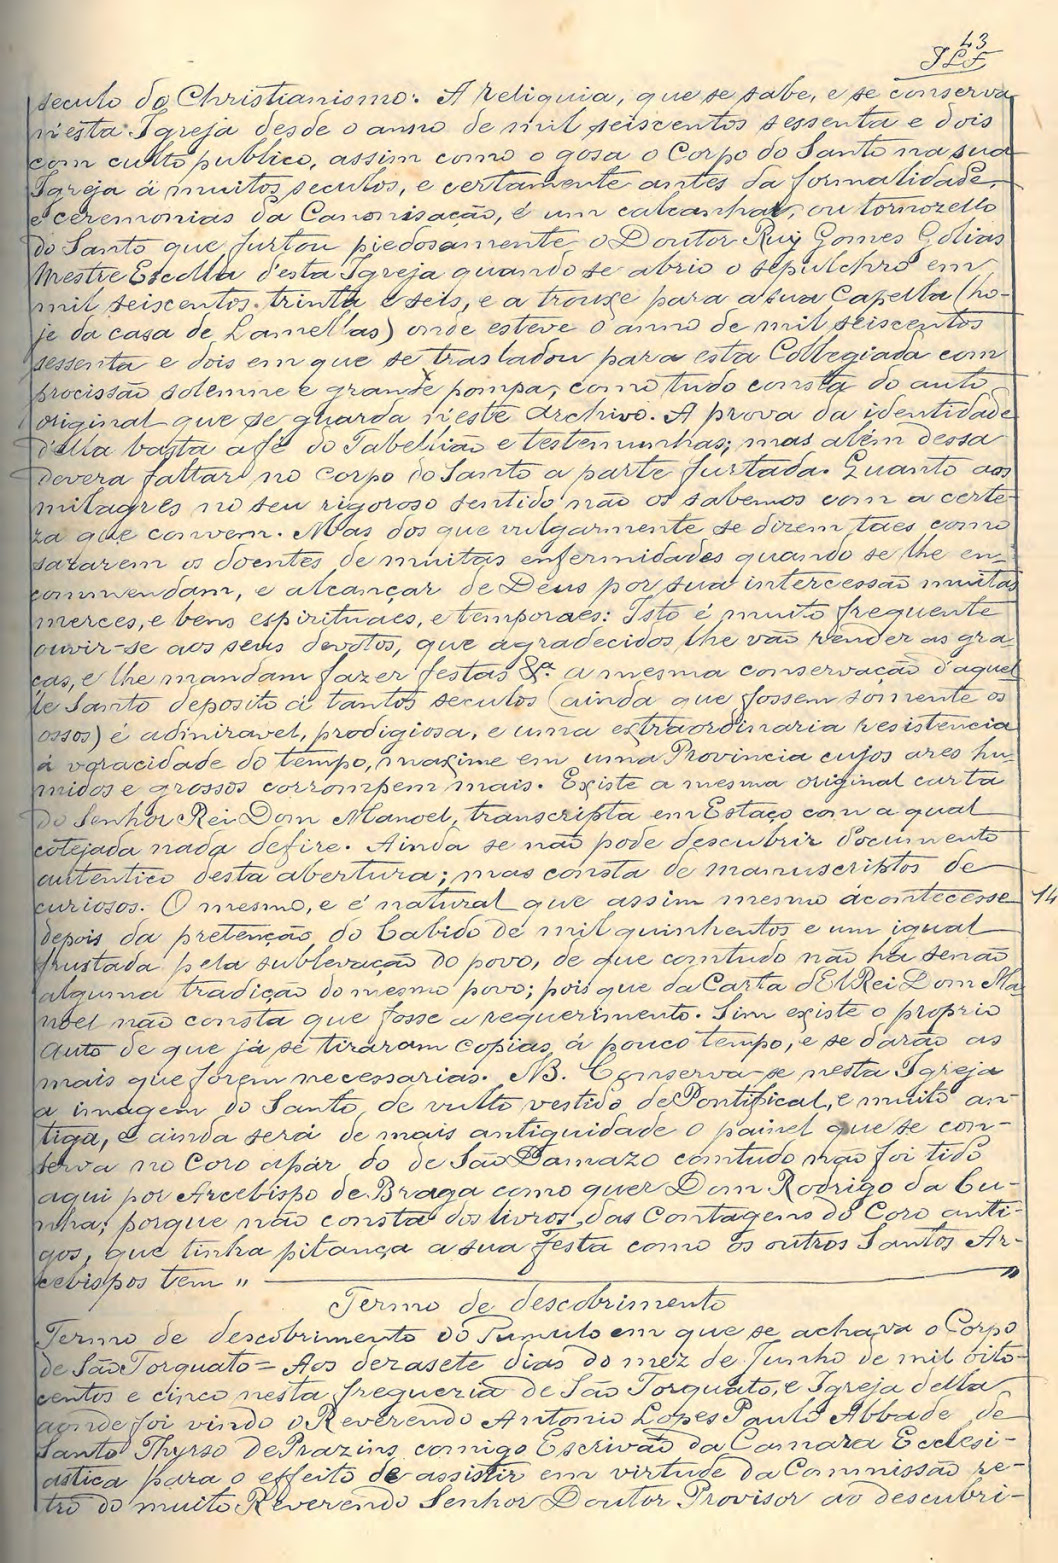 43
JLF
seculo do Christianismo. A reliquia, que se sabe, e se conserva
n'esta Igreja desde o anno de mil seiscentos sessenta e dois
com culto publico, assim como o gosa o Corpo do Santo na sua
Igreja á muitos seculos, e certamente antes da formalidade,
e ceremonias da Canonisação, é um calcanhar, ou tornozello
do Santo que furtou piedosamente o Doutor Ruy Gomes Golias
Mestre Escolla d'esta Igreja quando se abrio o sepulchro em
mil seiscentos trinta e seis, e a trouxe para a sua Capella (ho-
je da casa de Lamellas) onde esteve o anno de mil seiscentos
sessenta e dois em que se trasladou para esta Collegiada com
procissão solemne e grande pompa, como tudo consta do auto
original que se guarda n'este Archivo. A prova da identidade
d'ella basta a fé do Tabellião e testemunhas; mas além dessa
devera faltar no corpo do Santo a parte furtada. Quanto aos
milagres no seu rigoroso sentido não os sabemos com a certe-
za que convem. Mas dos que vulgarmente se dizem taes como
sararem os doentes de muitas enfermidades quando se lhe en-
commendam, e alcançar de Deus por sua intercessão muitas
merces, e bens espirituaes, e temporaes: Isto é muito frequente
ouvir-se aos seus devotos, que agradecidos lhe vão render as gra-
ças, e lhe mandam fazer festas &.ª a mesma conservação d'aquel
le Santo deposito á tantos seculos (ainda que fossem somente os
ossos) é admiravel, prodigiosa, e uma extraordinaria resistencia
á voracidade do tempo, maxime em uma Provincia cujos ares hu-
midos e grossos corrompem mais. Existe a mesma original carta
do Senhor Rei Dom Manoel, transcripta em Estaço com a qual
cotejada nada defire. Ainda se não pode descubrir documento
autentico desta abertura; mas consta de manuscriptos de
curiosos. O mesmo, e é natural que assim mesmo acontecesse
14
depois da pretenção do Cabido de mil quinhentos e um igual
frustada pela sublevação do povo, de que comtudo não há senão
alguma tradição do mesmo povo; pois que da Carta d'El Rei Dom Ma-
noel não consta que fosse a requerimento. Sim existe o proprio
Auto de que já se tiraram copias á pouco tempo, e se darão as
mais que forem necessarias. NB. Conserva-se nesta Igreja
a imagem do Santo de vulto vestido de Pontifical, e muito an-
tiga, e ainda será de mais antiguidade o painel que se con-
serva no Coro apár do de São Damazo comtudo não foi tido
aqui por Arcebispo de Braga como quer Dom Rodrigo da Cu-
nha; porque não consta dos livros das Contagens do Coro anti-
gos, que tinha pitança a sua festa como os outros Santos Ar-
cebispos tem "
Termo de descobrimento
Termo de descobrimento do Tumulo em que se achava o Corpo
de São Torquato = Aos dezasete dias do mez de Junho de mil oito-
centos e cinco nesta freguezia de São Torquato, e Igreja della
aonde foi vindo o Reverendo Antonio Lopes Paulo Abbade de
Santo Thyrso de Prazins comigo Escrivão da Camara Ecclesi-
astica para o effeito de assistir em virtude da Commissão re-
tro do muito Reverendo Senhor Doutor Provisor ao descubri-